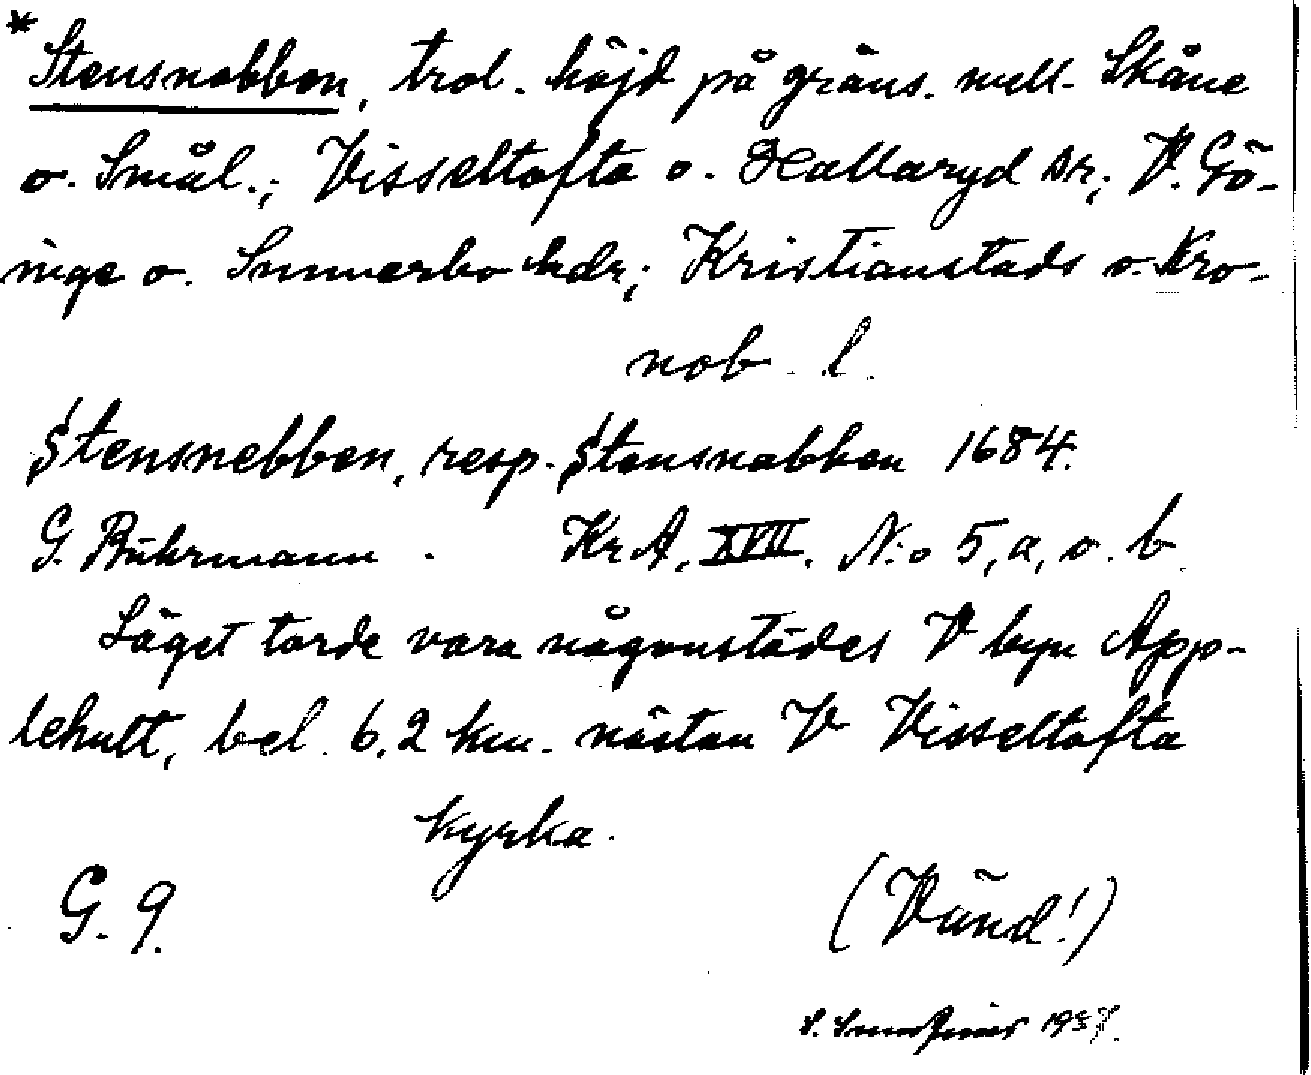 * Stensnabben, trol. höjd på gräns. mell. Skåne
o. Smål.; Visseltofta o. Hallaryd sr; V. Gö-
inge o. Sunnerbo hdr; Kristianstads o. Kro-
nob. l.
Stensnebben, resp. Stensnabben 1684.
G. Buhrmann. Kr A. XVII. N:o 5, a, o. b.
Läget torde vara någonstädes V byn App-
lehult, bel. 6,2 km. nästan V Visseltofta
kyrka.
G. 9. (Vänd!)
1937.